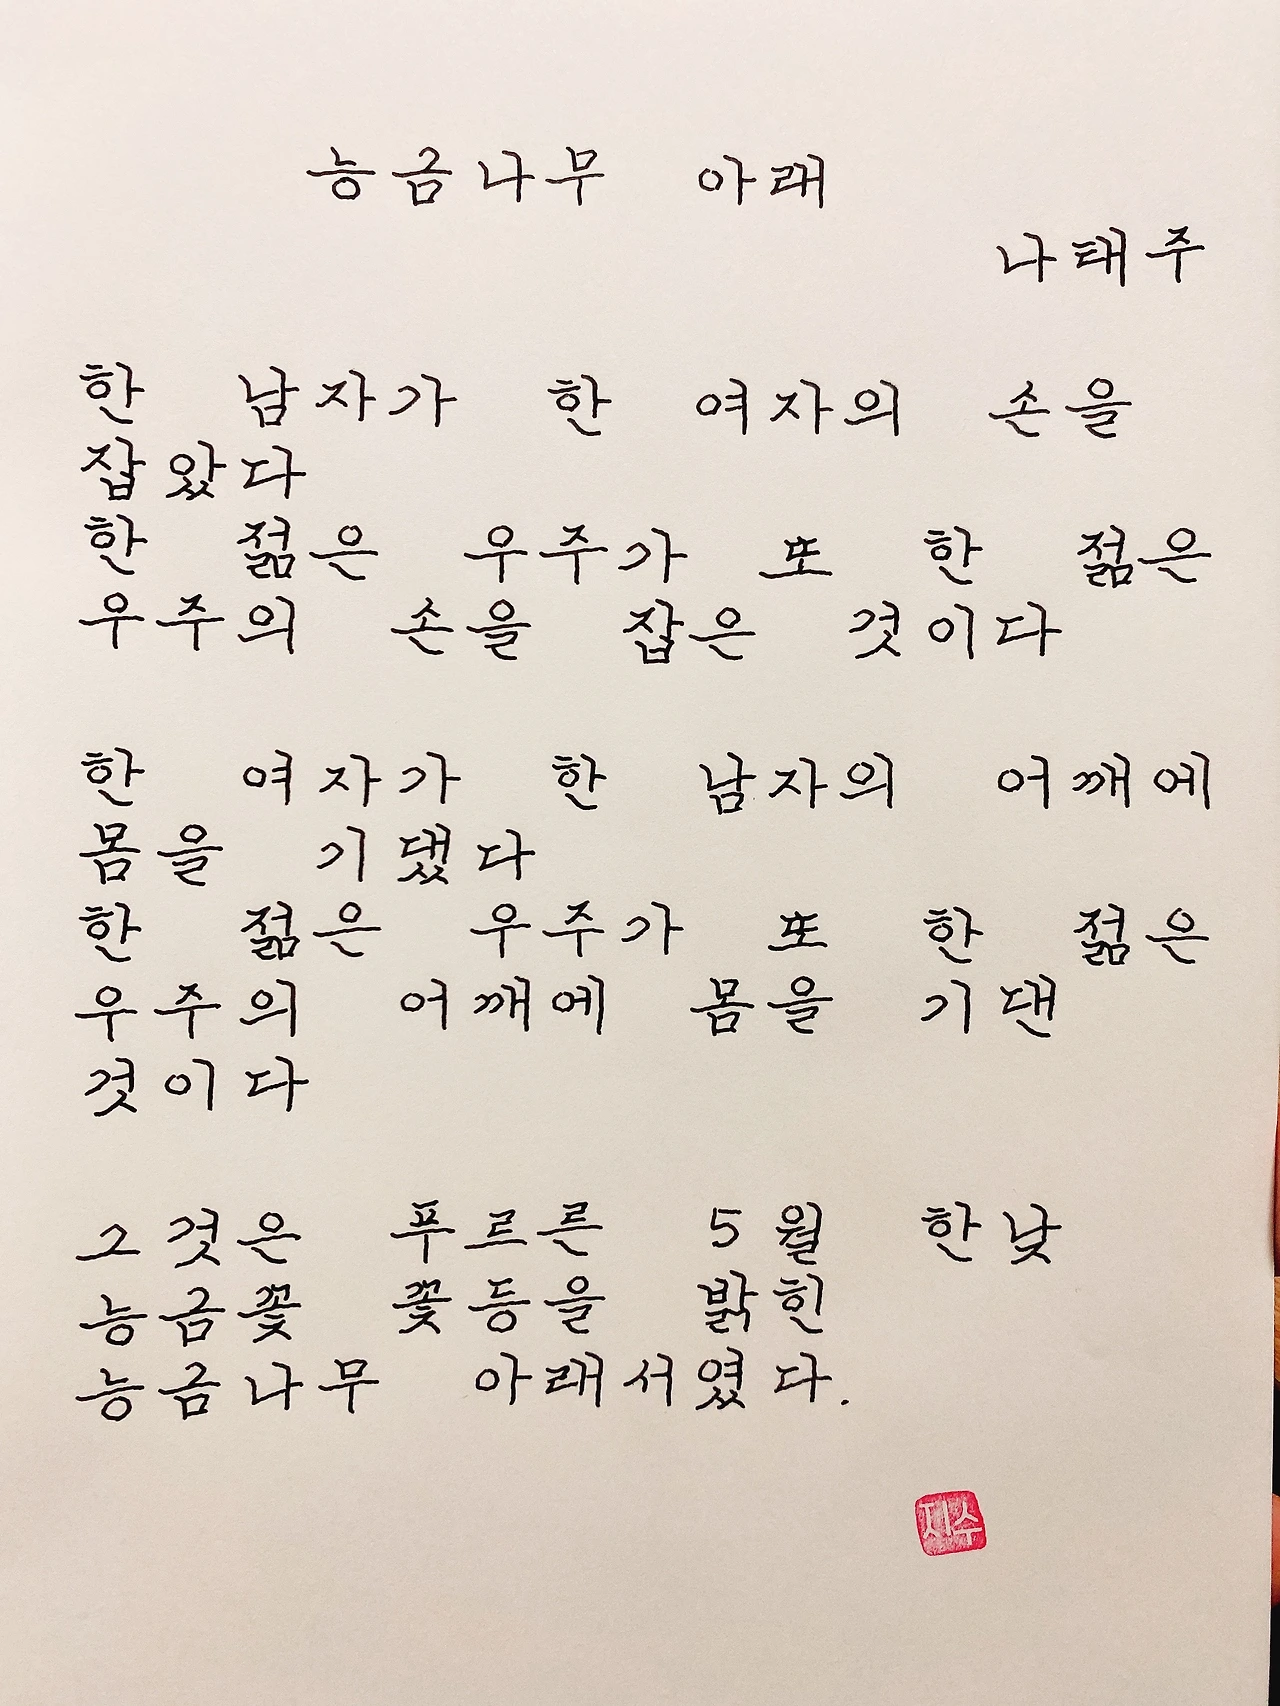 능금나무 아래
나태주
한 남자가 한 여자의 손을
잡았다
한 젊은 우주가 또 한 젊은
우주의 손을 잡은 것이다
한 여자가 한 남자의 어깨에
몸을 기댔다
한 젊은 우주가 또 한 젊은
우주의 어깨에 몸을 기댄
것이다
그것은 푸르른 5월 한낮
능금꽃 꽃등을 밝힌
능금나무 아래서였다.
지수